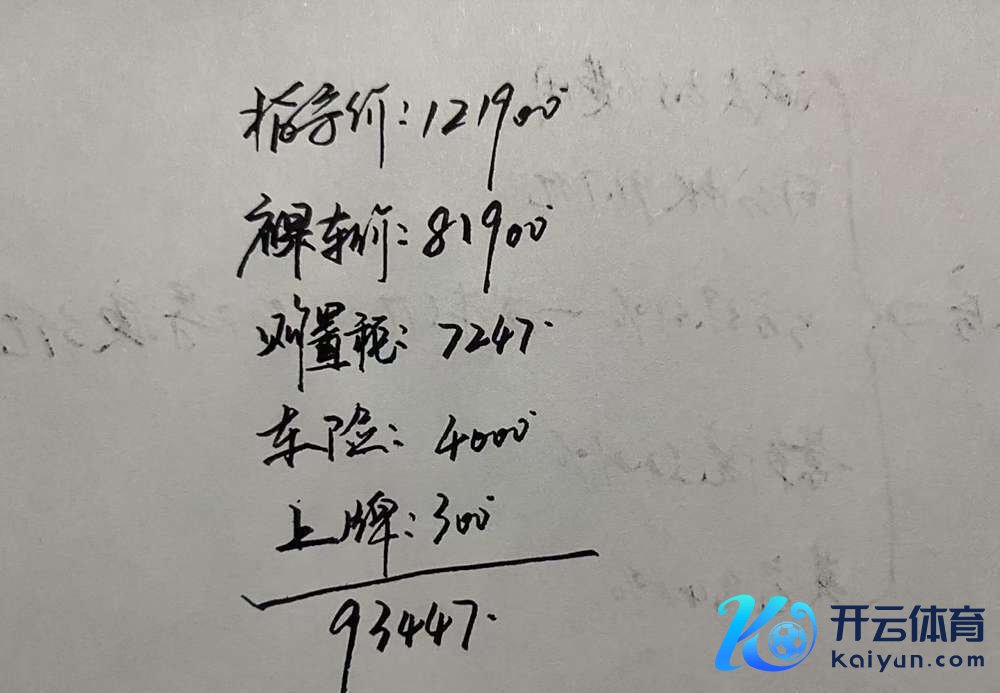 指导价:121900
裸车价:81900
购置税:7247
车险:4000
上牌:300
93447
开云体育
kaiyun.com